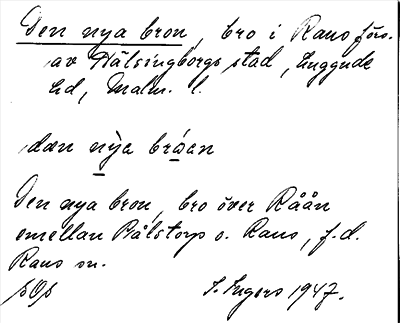 Den nya bron, bro i Raus förs.
av Hälsingborgs stad, Luggude
hd, Malm. l.
dæn nỳa bróen
Den nya bron, bro över Råån
emellan Pålstorp o. Raus, f.d.
Raus sn.
S. Ingers 1947.